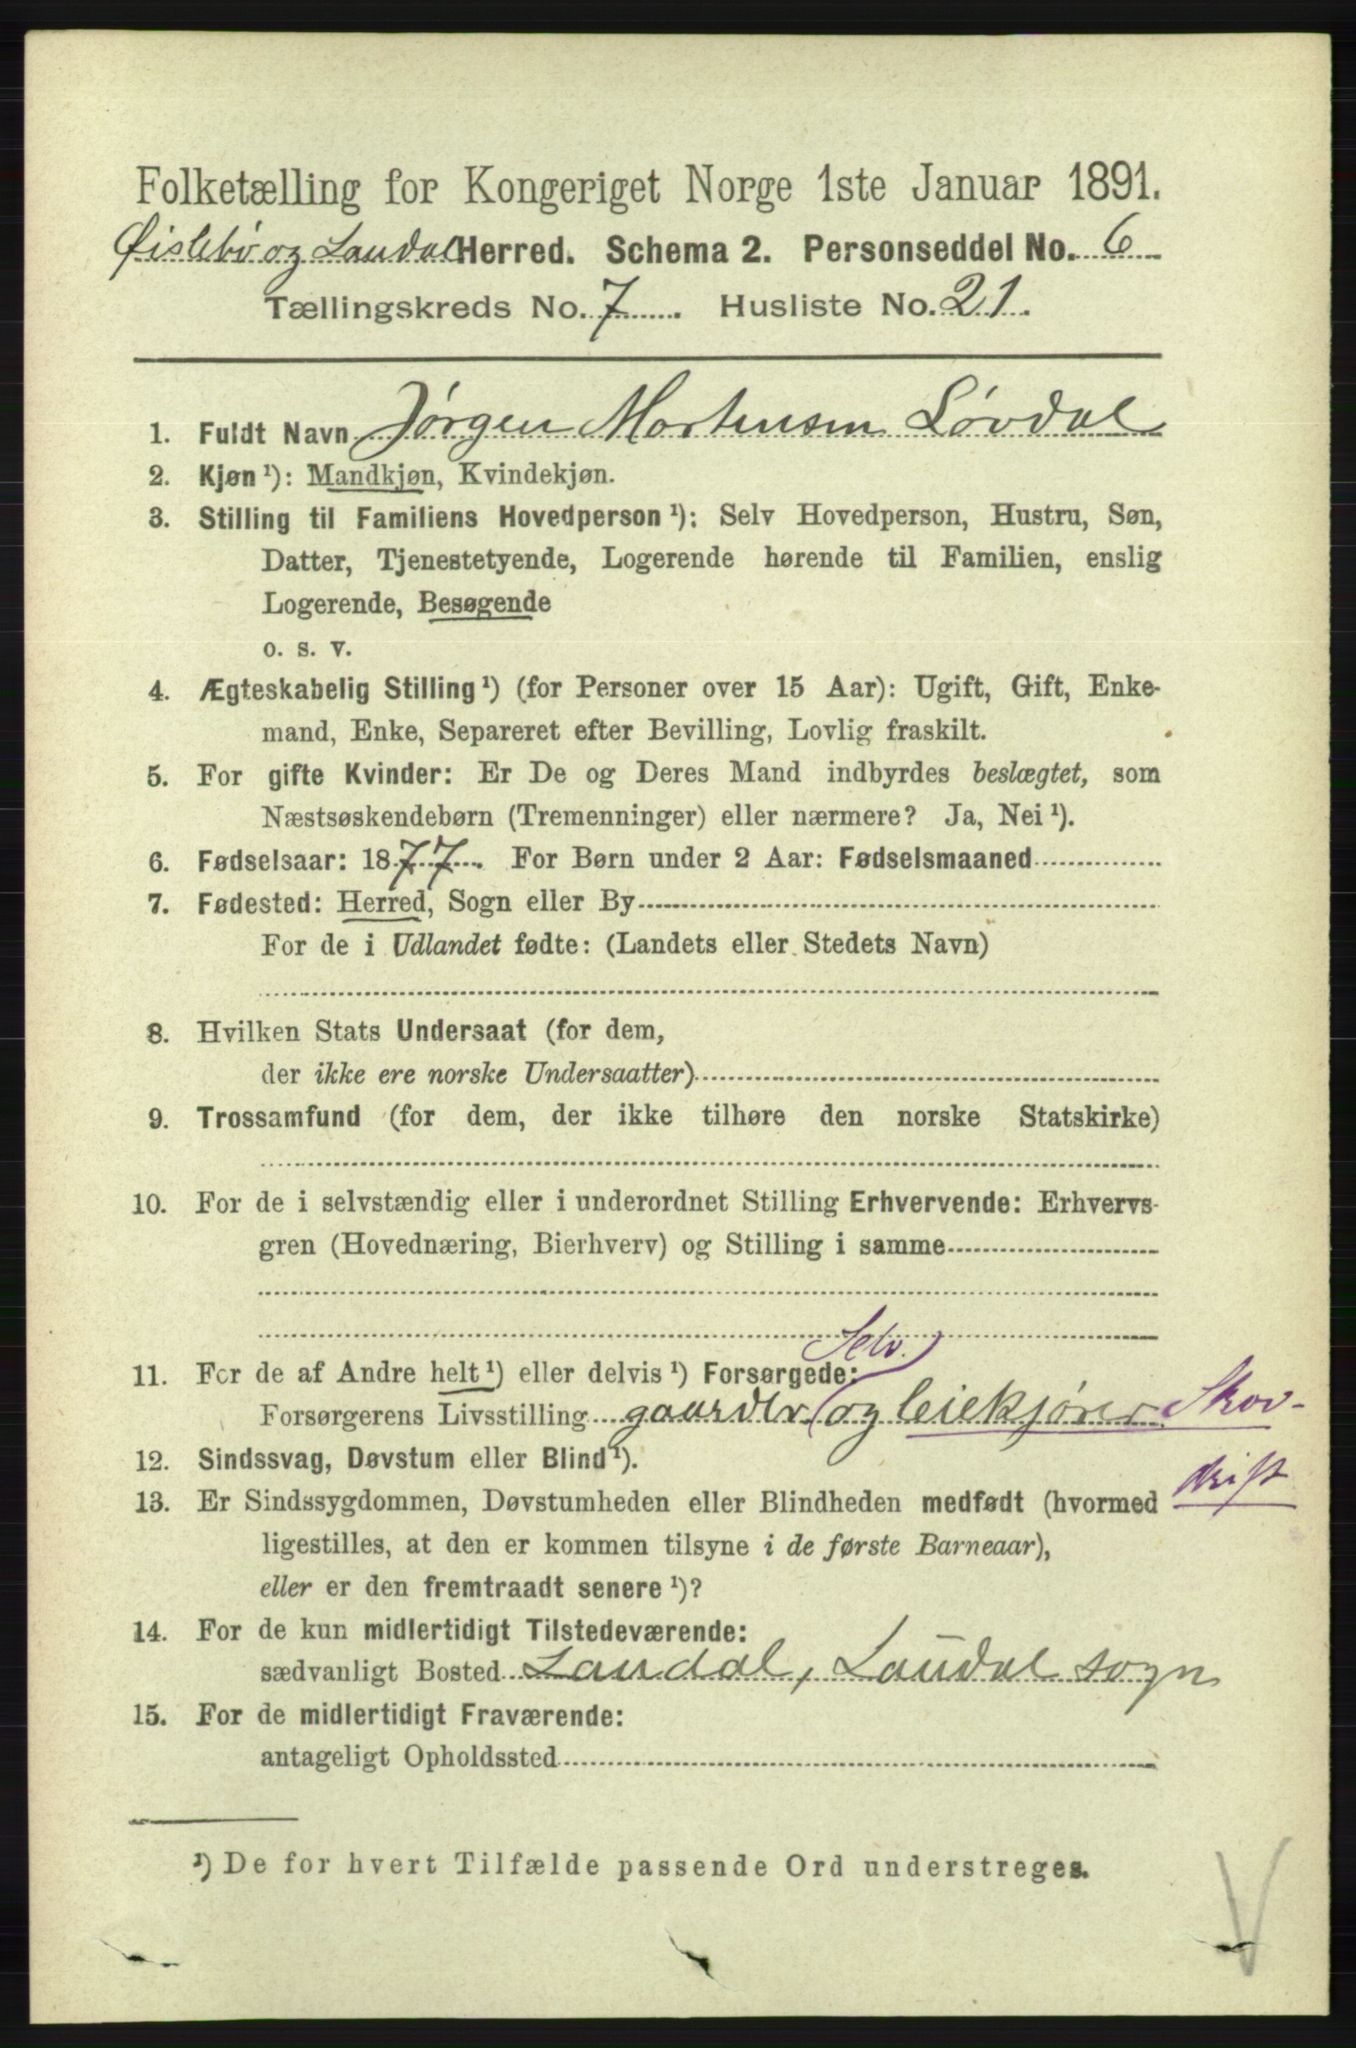 Folketælling for Kongeriget Norge 1ste Januar 1891.
Øislebø og Laudal Herred. Schema 2. Personseddel No. 6
Tællingskreds No. 7. Husliste No. 21.
1. Fuldt Navn Jørgen Mortensen Løvdal
2. Kjøn¹): Mandkjøn, Kvindekjøn.
3. Stilling til Familiens Hovedperson¹): Selv Hovedperson, Hustru, Søn,
Datter, Tjenestetyende, Logerende hørende til Familien, enslig
Logerende, Besøgende
o. s. v.
4. Ægteskabelig Stilling¹) (for Personer over 15 Aar): Ugift, Gift, Enke-
mand, Enke, Separeret efter Bevilling, Lovlig fraskilt.
5. For gifte Kvinder: Er De og Deres Mand indbyrdes beslægtet, som
Næstsøskendebørn (Tremenninger) eller nærmere? Ja, Nei¹).
6. Fødselsaar: 1877. For Børn under 2 Aar: Fødselsmaaned
7. Fødested: Herred, Sogn eller By
For de i Udlandet fødte: (Landets eller Stedets Navn)
8. Hvilken Stats Undersaat (for dem,
der ikke ere norske Undersaatter)
9. Trossamfund (for dem, der ikke tilhøre den norske Statskirke)
10. For de i selvstændig eller i underordnet Stilling Erhvervende: Erhvervs-
gren (Hovednæring, Bierhverv) og Stilling i samme
Selv.
11. For de af Andre helt¹) eller delvis¹) Forsørgede:
Forsørgerens Livsstilling gaardbr. (og leiekjører Skov-
drift
12. Sindssvag, Døvstum eller Blind¹).
13. Er Sindssygdommen, Døvstumheden eller Blindheden medfødt (hvormed
ligestilles, at den er kommen tilsyne i de første Barneaar),
eller er den fremtraadt senere¹)?
14. For de kun midlertidigt Tilstedeværende:
sædvanligt Bosted Laudal, Laudal sogn
15. For de midlertidigt Fraværende:
antageligt Opholdssted
¹) De for hvert Tilfælde passende Ord understreges.
V